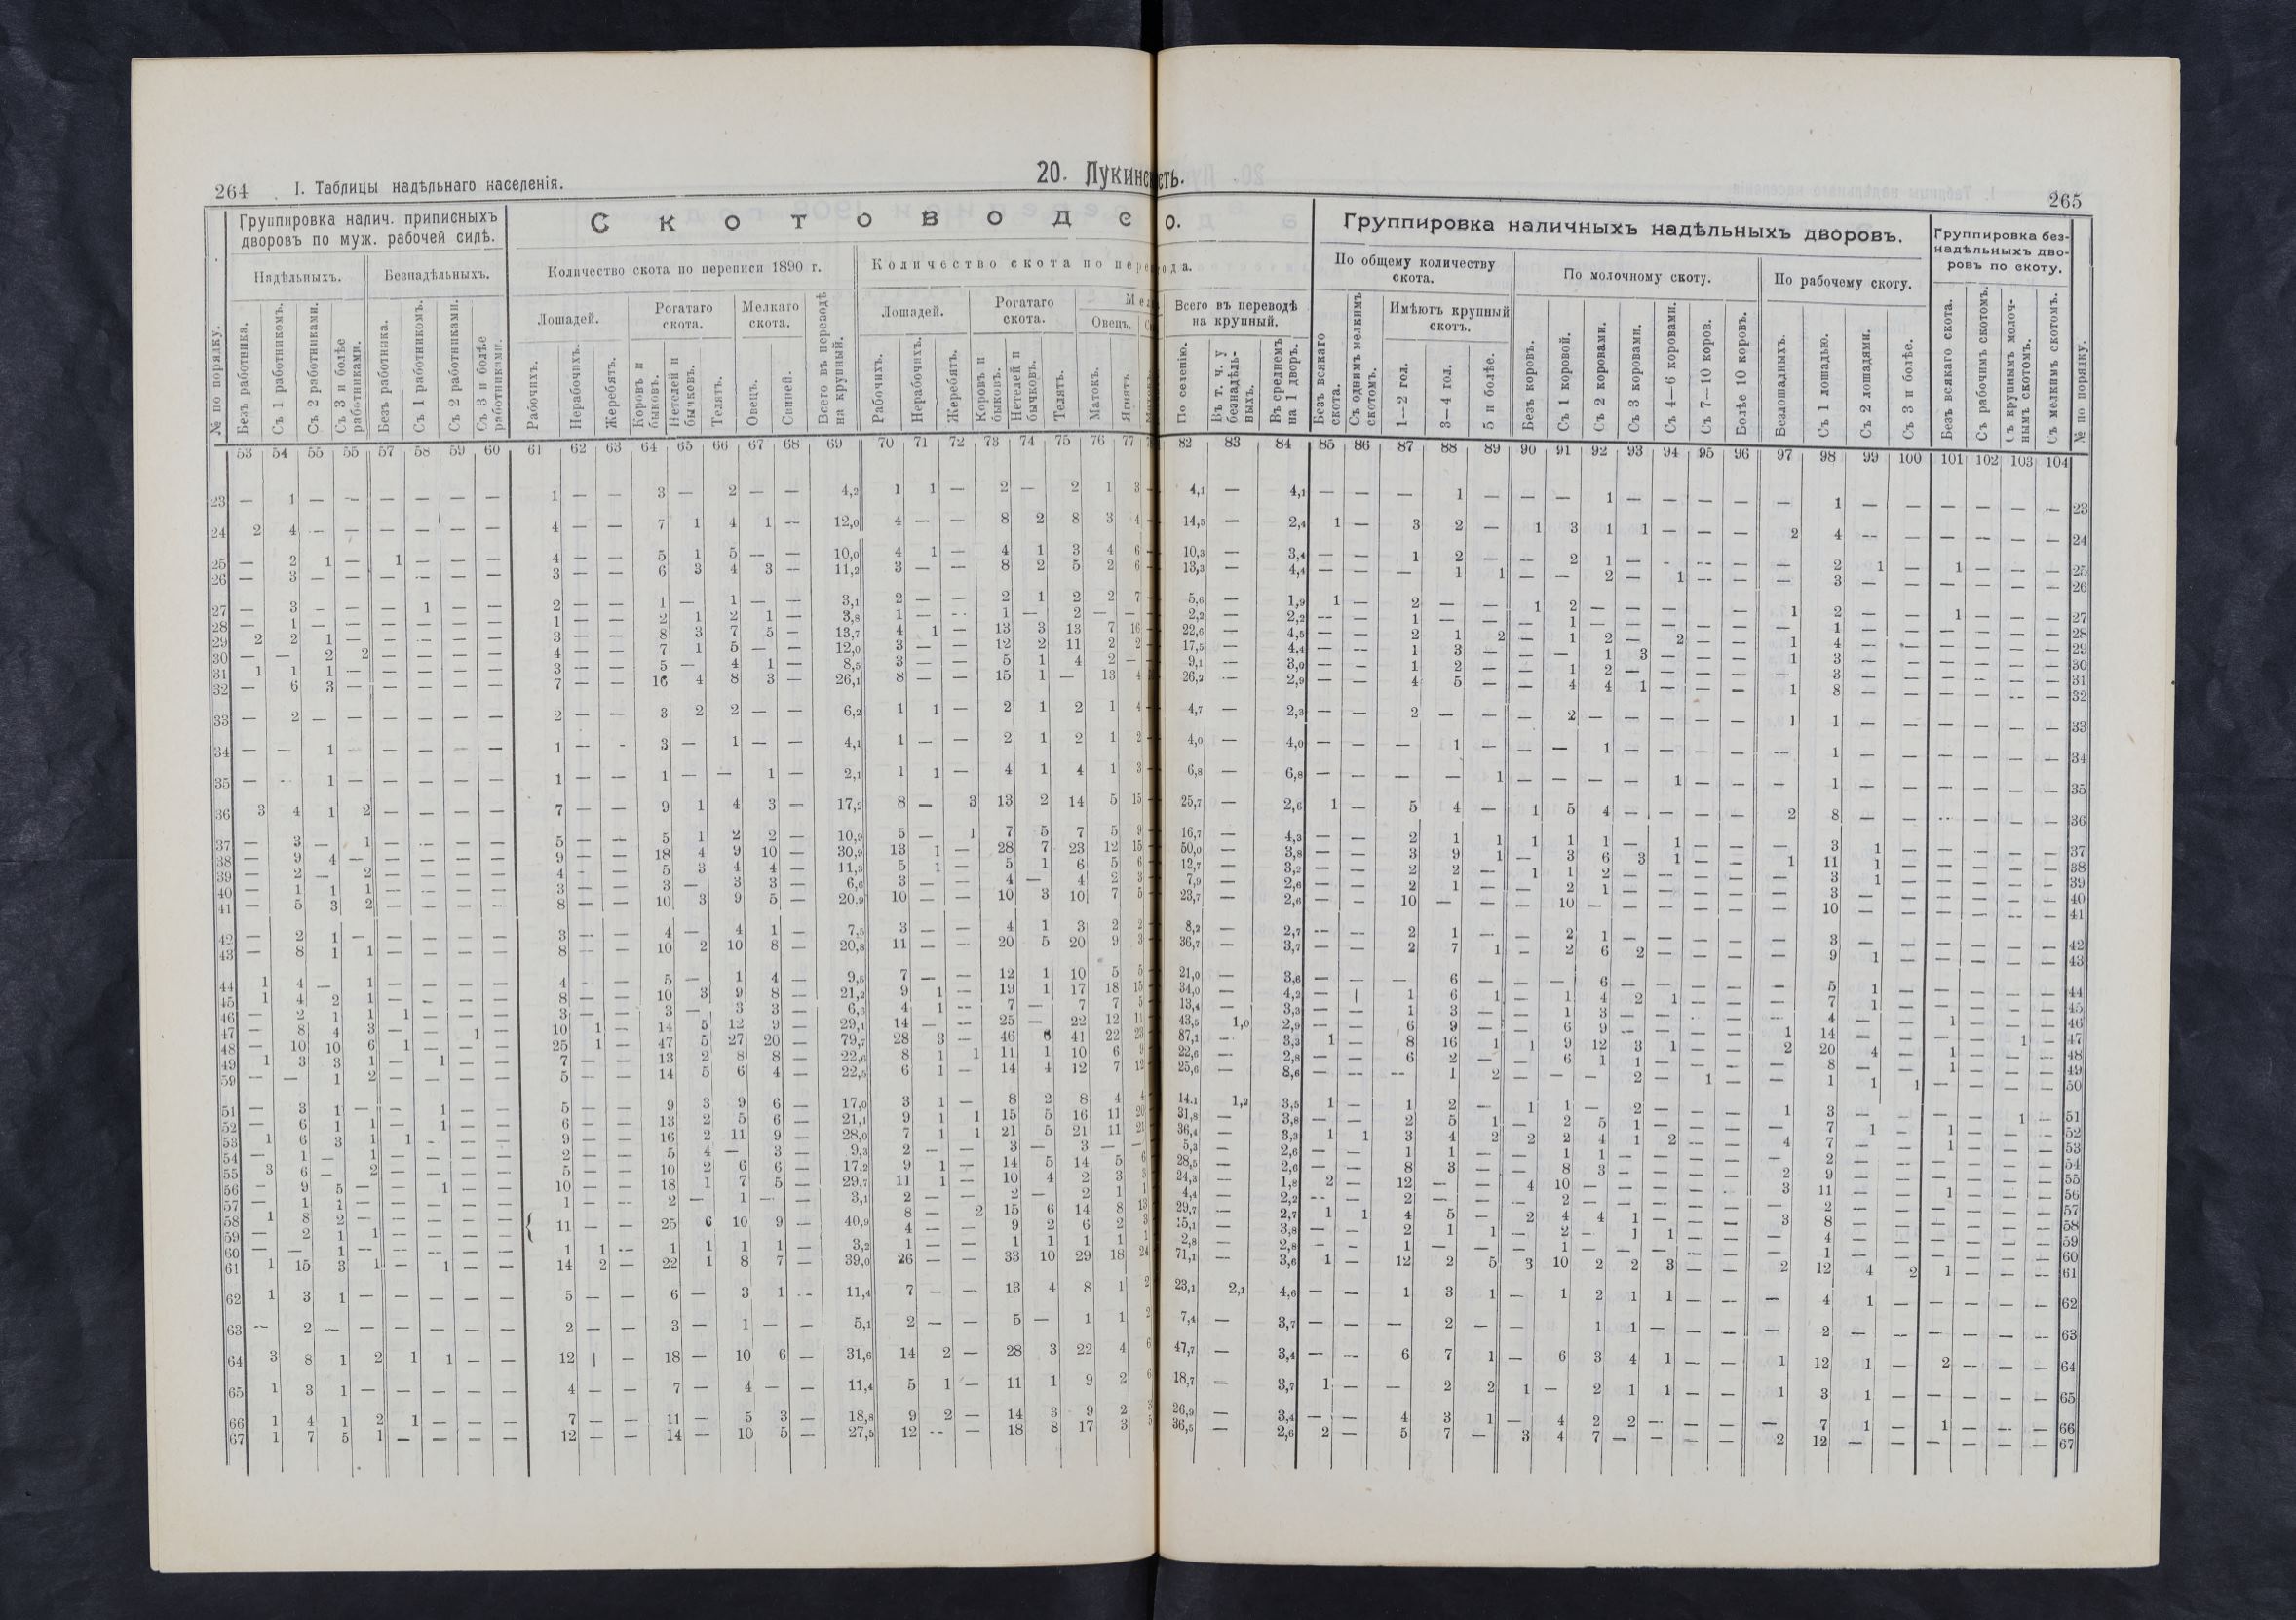 20. Лукинс сть.
264 I. Таблицы надѣльнаго населенія.
265
№ по порядку.
Группировка налич. приписныхъ дворовъ по муж. рабочей силѣ.
Надѣльныхъ. Безнадѣльныхъ.
Безъ работника. Съ 1 работникомъ. Съ 2 работниками. Съ 3 и болѣе работниками. Безъ работника. Съ 1 работникомъ. Съ 2 работниками. Съ 3 и болѣе работниками.
С к о т о в о д с о.
Количество скота по переписи 1890 г.
Лошадей. Рогатаго скота. Мелкаго скота. Всего въ переводѣ на крупный.
Рабочихъ. Нерабочихъ. Жеребятъ. Коровъ и быковъ. Нетелей и бычковъ. Телятъ. Овецъ. Свиней.
Количество скота по пер ода.
Лошадей. Рогатаго скота. Ме
Овецъ.
Рабочихъ. Нерабочихъ. Жеребятъ. Коровъ и быковъ. Нетелей и бычковъ. Телятъ. Матокъ. Ягнятъ.
Всего въ переводѣ на крупный.
По селенію. Въ т. ч. у безнадѣльныхъ. Въ среднемъ на 1 дворъ.
Группировка наличныхъ надѣльныхъ дворовъ.
По общему количеству скота.
Безъ всякаго скота. Съ однимъ мелкимъ скотомъ. Имѣютъ крупный скотъ.
1—2 гол. 3—4 гол. 5 и болѣе.
По молочному скоту.
Безъ коровъ. Съ 1 коровой. Съ 2 коровами. Съ 3 коровами. Съ 4—6 коровами. Съ 7—10 коров. Болѣе 10 коровъ.
По рабочему скоту.
Безлошадныхъ. Съ 1 лошадью. Съ 2 лошадями. Съ 3 и болѣе.
Группировка безнадѣльныхъ дворовъ по скоту.
Безъ всякаго скота. Съ рабочимъ скотомъ. Съ крупнымъ молочнымъ скотомъ. Съ мелкимъ скотомъ.
№ по порядку.
53 54 55 55 57 58 59 60 61 62 63 64 65 66 67 68 69 70 71 72 73 74 75 76 77 82 83 84 85 86 87 88 89 90 91 92 93 94 95 96 97 98 99 100 101 102 103 104
23 — 1 — — — — — — 1 — — 3 — 2 — — 4,2 1 1 — 2 — 2 1 3 4,1 — 4,1 — — — 1 — — — 1 — — — — — 1 — — — — — — 23
24 2 4 — — — — — — 4 — — 7 1 4 1 — 12,0 4 — — 8 2 8 3 4 14,5 — 2,4 1 — 3 2 — 1 3 1 1 — — — 2 4 — — — — — — 24
25 — 2 1 — 1 — — — 4 — — 5 1 5 — — 10,0 4 1 — 4 1 3 4 6 10,3 — 3,4 — — 1 2 — — 2 1 — — — — — 2 1 — 1 — — — 25
26 — 3 — — — — — — 3 — — 6 3 4 3 — 11,2 3 — — 8 2 5 2 6 13,3 — 4,4 — — — 1 1 — — 2 — 1 — — — 3 — — — — — — 26
27 — 3 — — — 1 — — 2 — — 1 — 1 — — 3,1 2 — — 2 1 2 2 7 5,6 — 1,9 1 — 2 — — 1 2 — — — — — 1 2 — — 1 — — — 27
28 — 1 — — — — — — 1 — — 2 1 2 1 — 3,8 1 — — 1 — 2 — — 2,2 — 2,2 — — 1 — — — 1 — — — — — — 1 — — — — — — 28
29 2 2 1 — — — — — 3 — — 8 3 7 5 — 13,7 4 1 — 13 3 13 7 16 22,6 — 4,5 — — 2 1 2 — 1 2 — 2 — — 1 4 — — — — — — 29
30 — — 2 2 — — — — 4 — — 7 1 5 — — 12,0 3 — — 12 2 11 2 2 17,5 — 4,4 — — 1 3 — — — 1 3 — — — 1 3 — — — — — — 30
31 1 1 1 — — — — — 3 — — 5 — 4 1 — 8,5 3 — — 5 1 4 2 — 9,1 — 3,0 — — 1 2 — — 1 2 — — — — — 3 — — — — — — 31
32 — 6 3 — — — — — 7 — — 16 4 8 3 — 26,1 8 — — 15 1 — 13 4 26,2 — 2,9 — — 4 5 — — 4 4 1 — — — 1 8 — — — — — — 32
33 — 2 — — — — — — 2 — — 3 2 2 — — 6,2 1 1 — 2 1 2 1 4 4,7 — 2,3 — — 2 — — — 2 — — — — — 1 1 — — — — — — 33
34 — — 1 — — — — — 1 — — 3 — 1 — — 4,1 1 — — 2 1 2 1 2 4,0 — 4,0 — — — 1 — — — 1 — — — — — 1 — — — — — — 34
35 — — 1 — — — — — 1 — — 1 — — 1 — 2,1 1 1 — 4 1 4 1 3 6,8 — 6,8 — — — — 1 — — — — 1 — — — 1 — — — — — — 35
36 3 4 1 2 — — — — 7 — — 9 1 4 3 — 17,2 8 — 3 13 2 14 5 15 25,7 — 2,6 1 — 5 4 — 1 5 4 — — — — 2 8 — — — — — — 36
37 — 3 — 1 — — — — 5 — — 5 1 2 2 — 10,9 5 — 1 7 5 7 5 9 16,7 — 4,3 — — 2 1 1 1 1 1 — 1 — — — 3 1 — — — — — 37
38 — 9 4 — — — — — 9 — — 18 4 9 10 — 30,9 13 1 — 28 7 23 12 15 50,0 — 3,8 — — 3 9 1 — 3 6 3 1 — — 1 11 1 — — — — — 38
39 — 2 — 2 — — — — 4 — — 5 3 4 4 — 11,3 5 1 — 5 1 6 5 6 12,7 — 3,2 — — 2 2 — 1 1 2 — — — — — 3 1 — — — — — 39
40 — 1 1 1 — — — — 3 — — 3 — 3 3 — 6,6 3 — — 4 — 4 2 3 7,9 — 2,6 — — 2 1 — — 2 1 — — — — — 3 — — — — — — 40
41 — 5 3 2 — — — — 8 — — 10 3 9 5 — 20,9 10 — — 10 3 10 7 5 23,7 — 2,6 — — 10 — — — 10 — — — — — — 10 — — — — — — 41
42 — 2 1 — — — — — 3 — — 4 — 4 1 — 7,5 3 — — 4 1 3 2 2 8,2 — 2,7 — — 2 1 — — 2 1 — — — — — 3 — — — — — — 42
43 — 8 1 1 — — — — 8 — — 10 2 10 8 — 20,8 11 — — 20 5 20 9 3 36,7 — 3,7 — — 2 7 1 — 2 6 2 — — — — 9 1 — — — — — 43
44 1 4 — 1 — — — — 4 — — 5 — 1 4 — 9,5 7 — — 12 1 10 5 5 21,0 — 3,6 — — — 6 — — — 6 — — — — — 5 1 — — — — — 44
45 1 4 2 1 — — — — 8 — — 10 3 9 8 — 21,2 9 1 — 19 1 17 18 15 34,0 — 4,2 — | 1 6 1 — 1 4 2 1 — — — 7 1 — — — — — 45
46 — 2 1 1 1 — — — 3 — — 3 — 3 3 — 6,6 4 1 — 7 — 7 7 5 13,4 — 3,3 — — 1 3 — — 1 3 — — — — — 4 — — 1 — — — 46
47 — 8 4 3 — — 1 — 10 1 — 14 5 12 9 — 29,1 14 — — 25 — 22 12 11 43,5 1,0 2,9 — — 6 9 — — 6 9 — — — — 1 14 — — — — 1 — 47
48 — 10 10 6 1 — — — 25 1 — 47 5 27 20 — 79,7 28 3 — 46 8 41 22 23 87,1 — 3,3 1 — 8 16 1 1 9 12 3 1 — — 2 20 4 — 1 — — — 48
49 1 3 3 1 — 1 — — 7 — — 13 2 8 8 — 22,6 8 1 1 11 1 10 6 9 22,6 — 2,8 — — 6 2 — — 6 1 1 — — — — 8 — — 1 — — — 49
59 — — 1 2 — — — — 5 — — 14 5 6 4 — 22,5 6 1 — 14 4 12 7 12 25,6 — 8,6 — — — 1 2 — — — 2 — 1 — — 1 1 1 — — — — 50
51 — 3 1 — — 1 — — 5 — — 9 3 9 6 — 17,0 3 1 — 8 2 8 4 4 14.1 1,2 3,5 1 — 1 2 — 1 1 — 2 — — — 1 3 — — — — 1 — 51
52 — 6 1 1 — 1 — — 6 — — 13 2 5 6 — 21,1 9 1 1 15 5 16 11 20 31,8 — 3,8 — — 2 5 1 — 2 5 1 — — — — 7 1 — 1 — — — 52
53 1 6 3 1 1 — — — 9 — — 16 2 11 9 — 28,0 7 1 1 21 5 21 11 21 36,4 — 3,3 1 1 3 4 2 2 2 4 1 2 — — 4 7 — — 1 — — — 53
54 — 1 — 1 — — — — 2 — — 5 4 — 3 — 9,3 2 — — 3 — 3 — — 5,3 — 2,6 — — 1 1 — — 1 1 — — — — — 2 — — — — — — 54
55 3 6 — 2 — — — — 5 — — 10 2 6 6 — 17,2 9 1 — 14 5 14 5 6 28,5 — 2,6 — — 8 3 — — 8 3 — — — — 2 9 — — — — — — 55
56 — 9 5 — — 1 — — 10 — — 18 1 7 5 — 29,7 11 1 — 10 4 2 3 3 24,3 — 1,8 2 — 12 — — 4 10 — — — — — 3 11 — — 1 — — — 56
57 — 1 1 — — — — — 1 — — 2 — 1 — — 3,1 2 — — 2 — 2 1 1 4,4 — 2,2 — — 2 — — — 2 — — — — — — 2 — — — — — — 57
58 1 8 2 — — — — — { 11 — — 25 6 10 9 — 40,9 8 — 2 15 6 14 8 13 29,7 — 2,7 1 1 4 5 — 2 4 4 1 — — — 3 8 — — — — — — 58
59 — 2 1 1 — — — — 4 — — 9 2 6 2 3 15,1 — 3,8 — — 2 1 1 — 2 — 1 1 — — — 4 — — — — — — 59
60 — — 1 — — — — — 1 1 — 1 1 1 1 — 3,2 1 — — 1 1 1 1 1 2,8 — 2,8 — — 1 — — — 1 — — — — — — 1 — — — — — — 60
61 1 15 3 1 — 1 — — 14 2 — 22 1 8 7 — 39,0 26 — — 33 10 29 18 24 71,1 — 3,6 1 — 12 2 5 3 10 2 2 3 — — 2 12 4 2 1 — — — 61
62 1 3 1 — — — — — 5 — — 6 — 3 1 — 11,4 7 — — 13 4 8 1 2 23,1 2,1 4,6 — — 1 3 1 — 1 2 1 1 — — — 4 1 — — — — — 62
63 — 2 — — — — — — 2 — — 3 — 1 — — 5,1 2 — — 5 — 1 1 2 7,4 — 3,7 — — — 2 — — 1 1 — — — — 2 — — — — — — 63
64 3 8 1 2 1 1 — — 12 | — 18 — 10 6 — 31,6 14 2 — 28 3 22 4 6 47,7 — 3,4 — — 6 7 1 — 6 3 4 1 — — 1 12 1 — 2 — — — 64
65 1 3 1 — — — — — 4 — — 7 — 4 — — 11,4 5 1 — 11 1 9 2 6 18,7 — 3,7 1 — — 2 2 1 — 2 1 1 — — 1 3 1 — — — — — 65
66 1 4 1 2 1 — — — 7 — — 11 — 5 3 — 18,8 9 2 — 14 3 9 2 3 26,9 — 3,4 — — 4 3 1 — 4 2 2 — — — — 7 1 — 1 — — — 66
67 1 7 5 1 — — — — 12 — — 14 — 10 5 — 27,5 12 — — 18 8 17 3 5 36,5 — 2,6 2 — 5 7 — 3 4 7 — — — — 2 12 — — — — — — 67